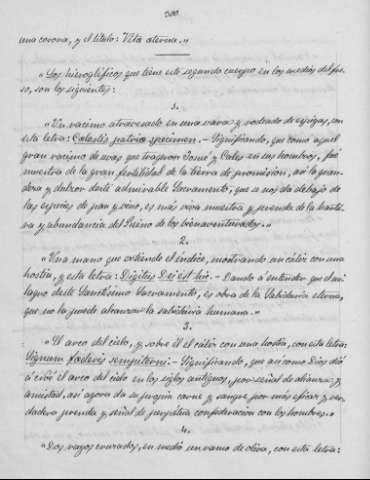 200
una corona, y el título: Vita aterna."
"Los hieroglíficos que tiene este segundo cuerpo en los medios del fri-
so, son los siguientes:
1.
"Un racimo atravesado en una vara y rodeado de espigas, con
esta letra: Cœlestis patriæ specimen. - Significando, que como aquel
gran racimo de uvas que trageron Josué y Caleb en sus hombros, fué
muestra de la gran fertilidad de la tierra de promision, así la gran-
deza y dulzor deste admirable Sacramento, que se nos da debajo de
las especies de pan y vino, es más viva muestra y prenda de la hartu-
ra y abundancia del Reino de los bienaventurados."
2.
"Una mano que estiende el índice, mostrando un cáliz con una
hostia, y esta letra: Digitus Dei est hic. - Dando á entender que el mi-
lagro deste Santísimo Sacramento, es obra de la Sabiduría eterna,
que no la puede alcanzar la sabiduría humana."
3.
"El arco del cielo, y sobre él el cáliz con una hostia, con esta letra:
Signum fœderis sempiterni: - Significando, que así como Dios dió
á él el arco del cielo en los siglos antiguos, por señal de alianza y
amistad, así agora da su propia carne y sangre por más eficaz y ver-
dadera prenda y señal de perpétua confederacion con los hombres."
4.
"Dos rayos cruzados, en medio un ramo de oliva, con esta letra: